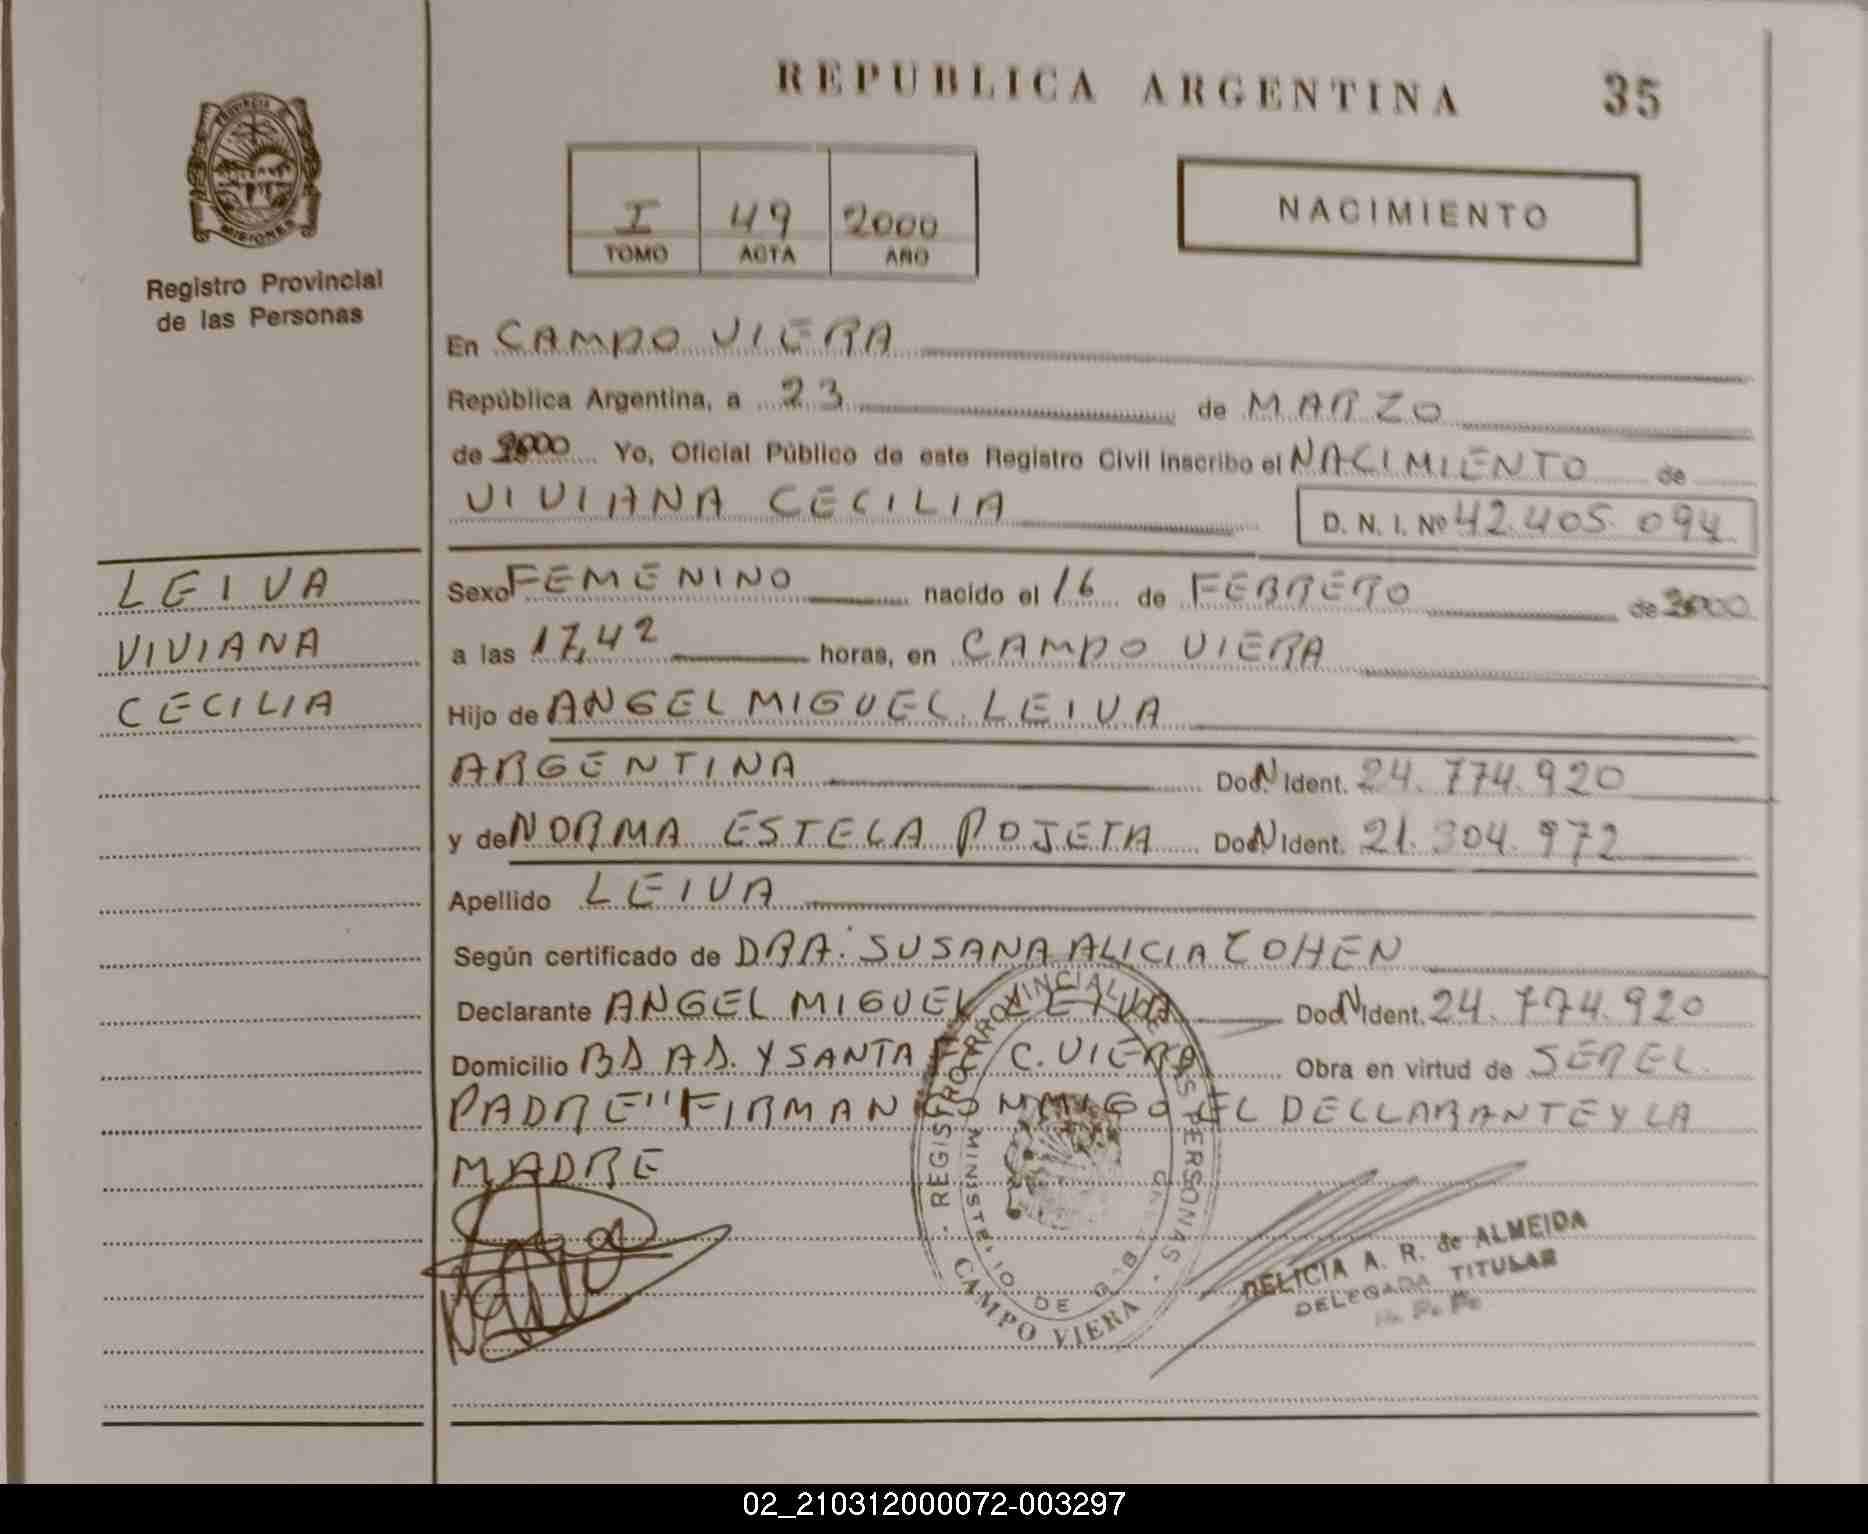 REPUBLICA ARGENTINA 35
PROVINCIA
MISIONES
Registro Provincial
de las Personas
I 49 2000
TOMO ACTA AÑO
NACIMIENTO
En CAMPO VIERA
República Argentina, a 23 de MARZO
de 2000 Yo, Oficial Público de este Registro Civil inscribo el NACIMIENTO de
VIVIANA CECILIA D. N. I. Nº 42.405.094
LEIVA
VIVIANA
CECILIA
Sexo FEMENINO nacido el 16 de FEBRERO de 2000
a las 17,42 horas, en CAMPO VIERA
Hijo de ANGEL MIGUEL LEIVA
ARGENTINA Doc. N Ident. 24.774.920
y de NORMA ESTELA POJETA Doc. N Ident. 21.304.972
Apellido LEIVA
Según certificado de DRA. SUSANA ALICIA COHEN
Declarante ANGEL MIGUEL LEIVA Doc. N Ident. 24.774.920
Domicilio BS AS. Y SANTA C. VIERA Obra en virtud de SER EL
PADRE" FIRMAN CONMIGO EL DECLARANTE Y LA
MADRE
REGISTRO PROVINCIAL DE LAS PERSONAS
MINISTERIO DE GOB.
CAMPO VIERA
DELICIA A. R. de ALMEIDA
DELEGADA TITULAR
02_210312000072-003297